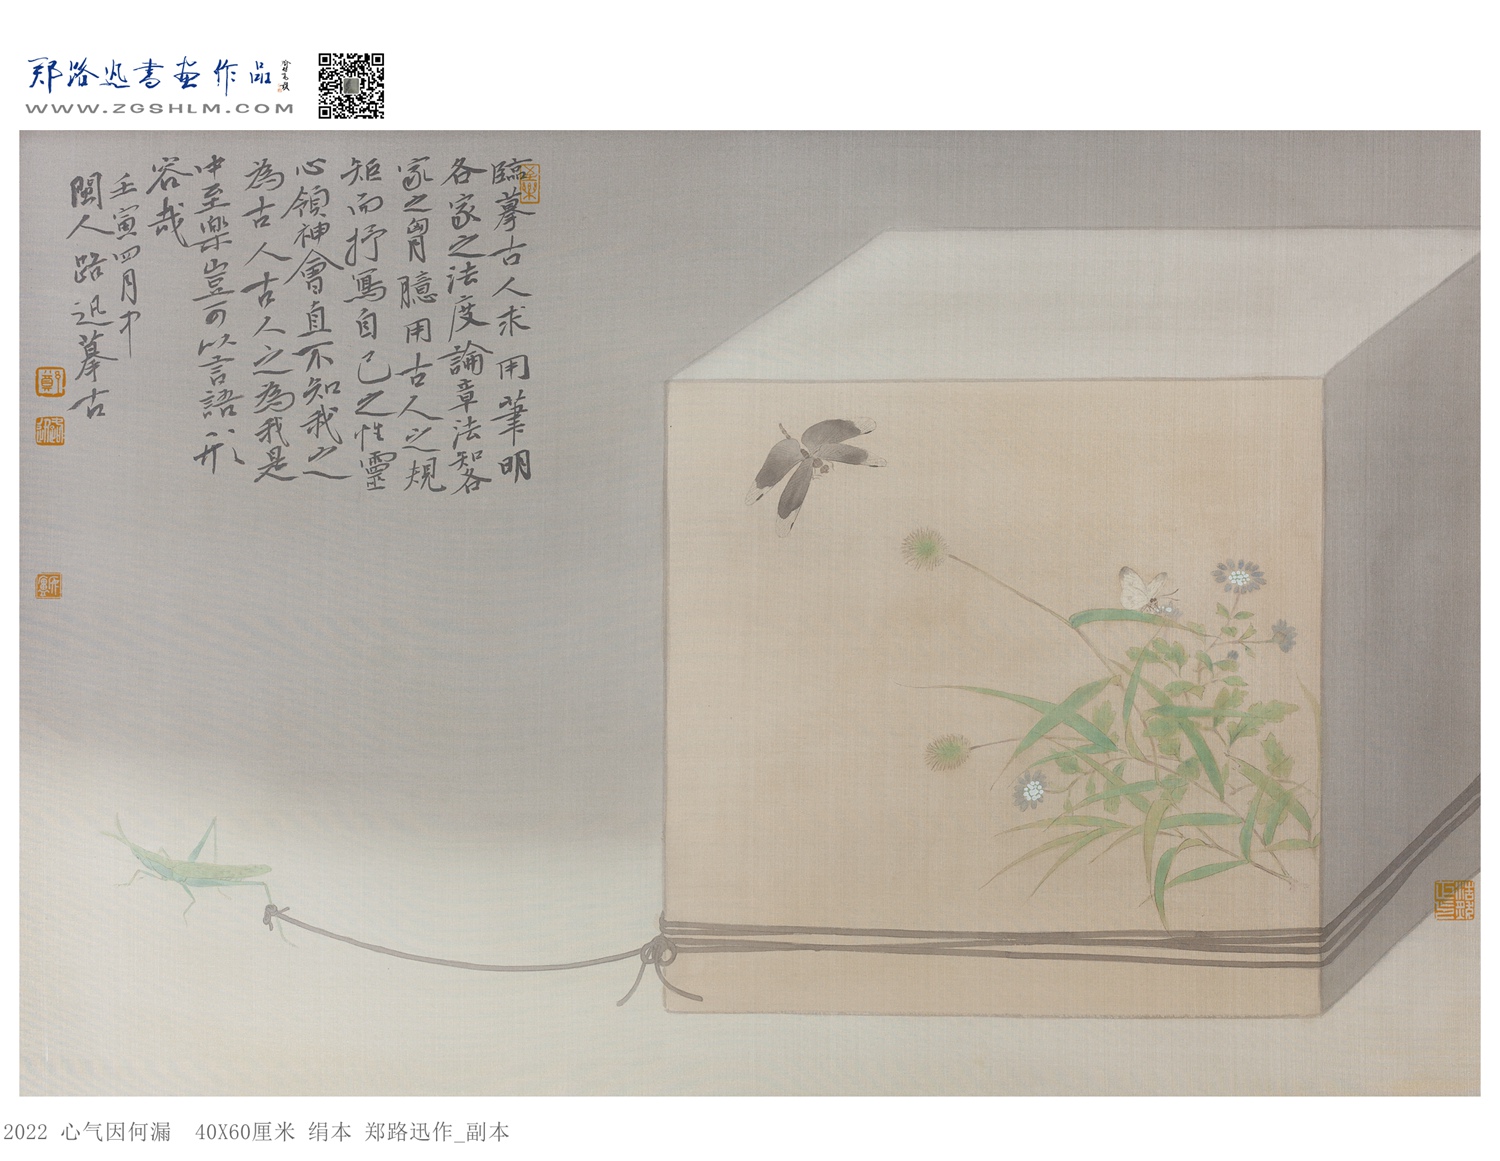 郑路迅書畫作品
WWW.ZGSHLM.COM
臨摹古人求用筆明
各家之法度論章法知各
家之胷臆用古人之規
矩而抒寫自己之性靈
心領神會直不知我之
為古人古人之為我是
中至樂豈可以言語形
容哉
壬寅四月中
閩人路迅摹古
2022 心气因何漏 40X60厘米 绢本 郑路迅作_副本